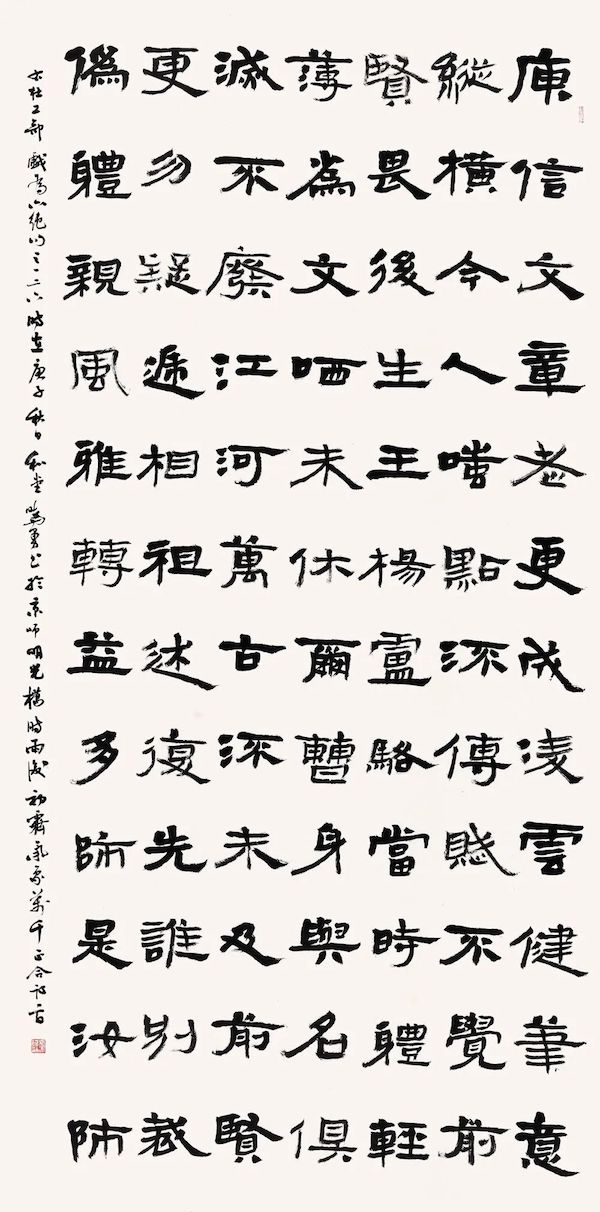 庾信文章老更成淩雲健筆意
縱橫今人嗤點流傳賦不覺前
賢畏後生王楊盧駱當時體輕
薄為文哂未休爾曹身與名俱
滅不廢江河萬古流未及前賢
更勿疑遞相祖述復先誰別裁
偽體親風雅轉益多師是汝師
右杜工部戲為六絕句之一二六時在庚子秋日和堂勇書於京師明光樓時雨後初霽氣象萬千正合詩